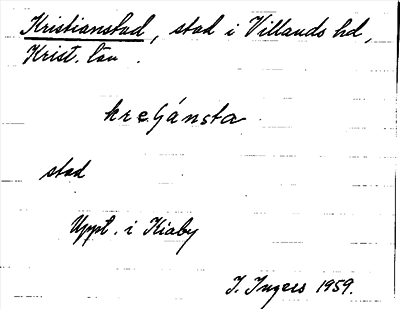 Kristianstad, stad i Villands hd,
Krist. län.
kreʃánsta.
stad
Uppt. i Kiaby
I. Ingers 1959.